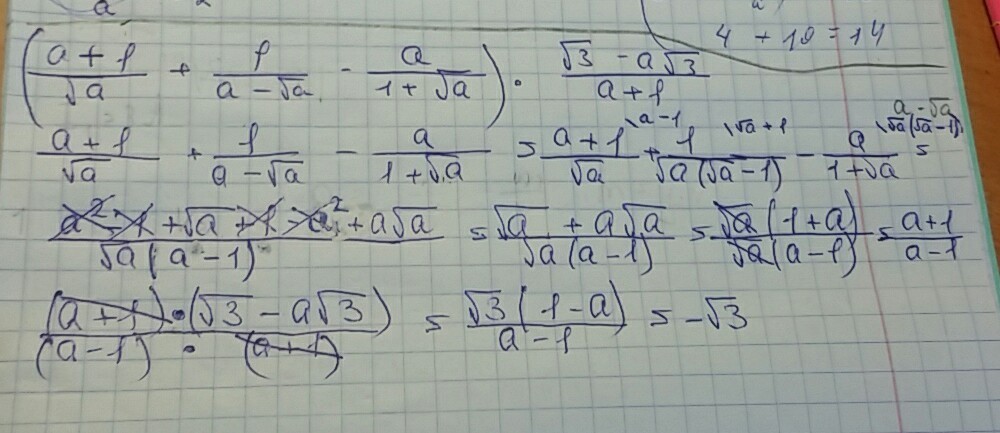 4 + 10 = 14
((a + 1)/√a + 1/(a - √a) - a/(1 + √a)) · (√3 - a√3)/(a + 1)
(a + 1)/√a + 1/(a - √a) - a/(1 + √a) = (a + 1)/√a \a - 1 + 1/(√a(√a - 1)) \√a + 1 - a/(1 + √a) \√a(√a - 1) a - √a =
(a² - 1 + √a + 1 - a² + a√a)/(√a(a - 1)) = (√a + a√a)/(√a(a - 1)) = (√a(1 + a))/(√a(a - 1)) = (a + 1)/(a - 1)
((a + 1) · (√3 - a√3))/((a - 1) · (a + 1)) = (√3(1 - a))/(a - 1) = -√3